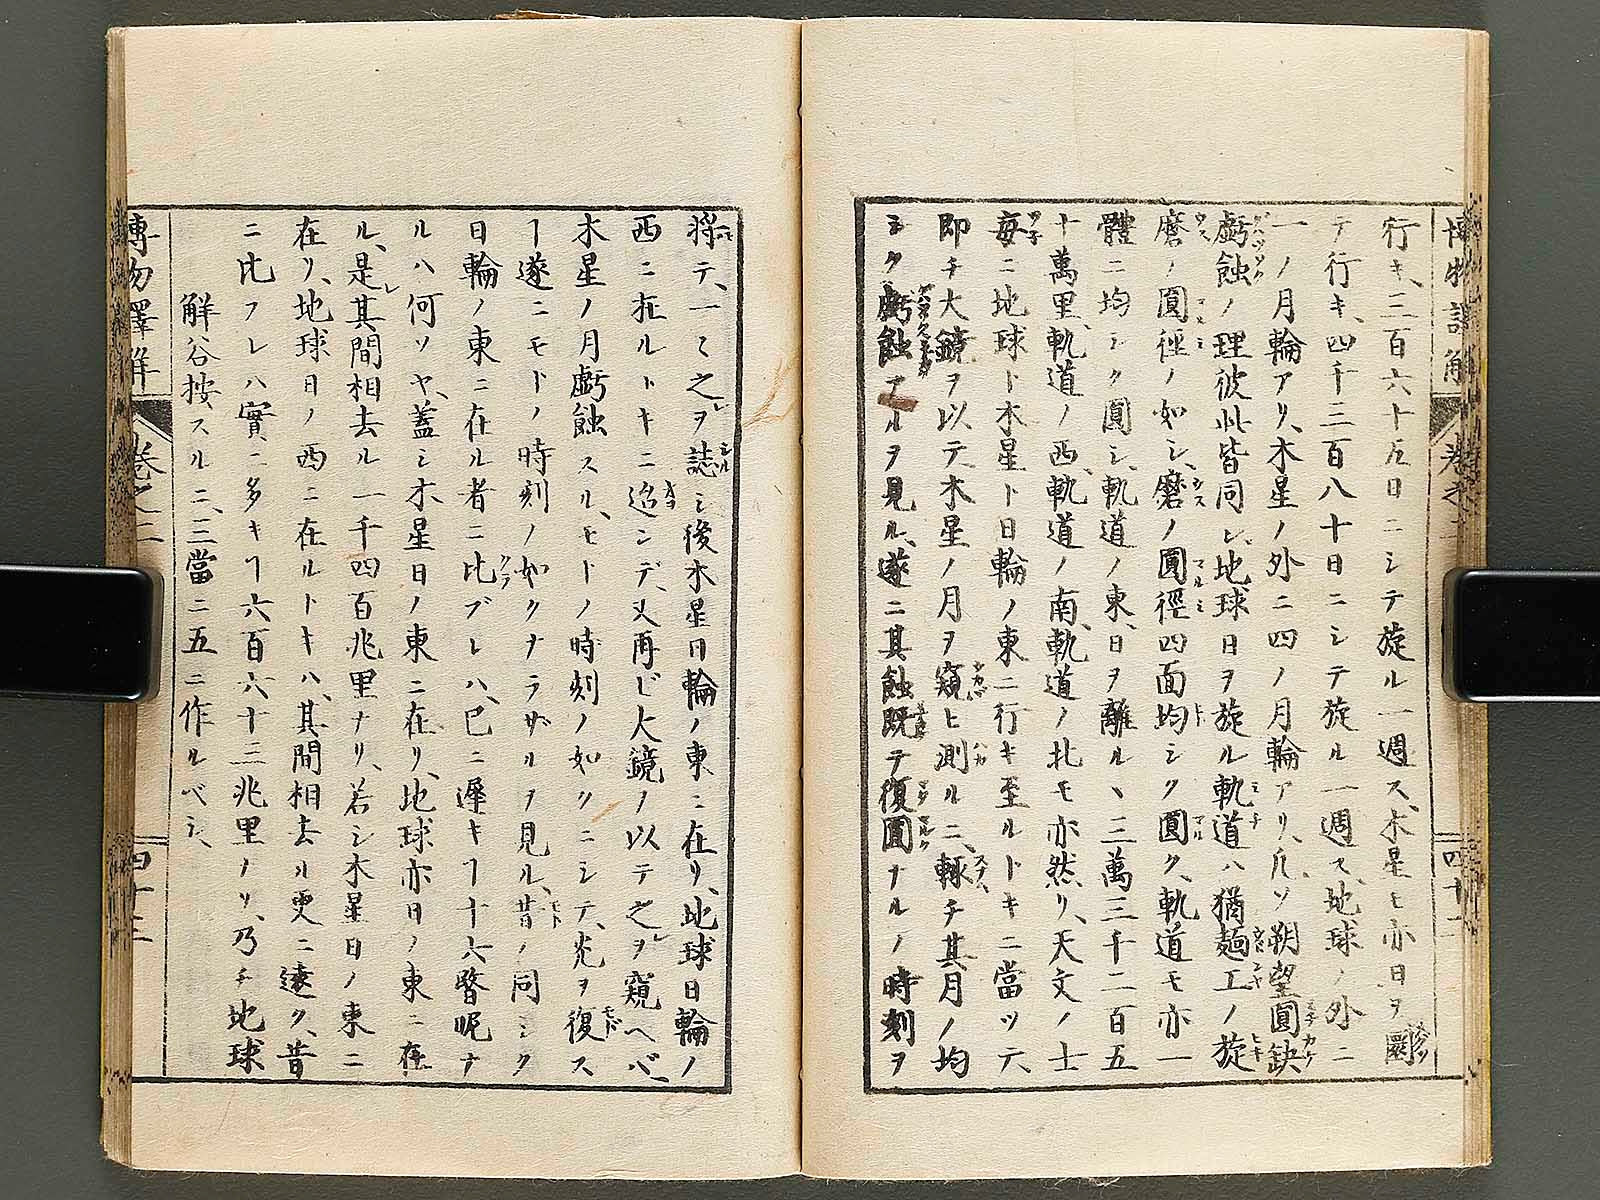 行キ、三百六十五日ニシテ旋ル一週ス、木星モ亦日ヲ圜
テ行キ、四千三百八十日ニシテ旋ル一週ス、地球ノ外ニ
一ノ月輪アリ、木星ノ外ニ四ノ月輪アリ、凡ソ朔望圓缺
虧蝕ノ理彼此皆同シ、地球日ヲ旋ル軌道ハ猶麺工ノ旋
磨ノ圓徑ノ如シ、磨ノ圓徑四面均シク圓ク、軌道モ亦一
體ニ均シク圓シ、軌道ノ東、日ヲ離ルヽ三萬三千二百五
十萬里、軌道ノ西、軌道ノ南、軌道ノ北モ亦然リ、天文ノ士
毎ニ地球ト木星ト日輪ノ東ニ行キ至ルトキニ當ツテ、
即チ大鏡ヲ以テ木星ノ月ヲ窺ヒ測ルニ、輒チ其月ノ均
シク虧蝕アルヲ見ル、遂ニ其蝕既テ復圓ナルノ時刻ヲ
將テ、一々之ヲ誌シ後木星日輪ノ東ニ在リ、地球日輪ノ
西ニ在ルトキニ迨ンデ、又再ビ大鏡ヲ以テ之ヲ窺ヘバ、
木星ノ月虧蝕スル、モトノ時刻ノ如クニシテ、光ヲ復ス
ヿ遂ニモトノ時刻ノ如クナラザルヲ見ル、昔ノ同シク
日輪ノ東ニ在ル者ニ比ブレハ、已ニ遲キヿ十六瞥眤ナ
ルハ何ソヤ、蓋シ木星日ノ東ニ在リ、地球亦日ノ東ニ在
ル、是其間相去ル一千四百兆里ナリ、若シ木星日ノ東ニ
在リ、地球日ノ西ニ在ルトキハ、其間相去ル更ニ遠ク、昔
ニ比フレハ實ニ多キヿ六百六十三兆里ノリ、乃チ地球
解谷按スルニ、三當ニ五ニ作ルベシ、
博物譯解
卷之二
四十三